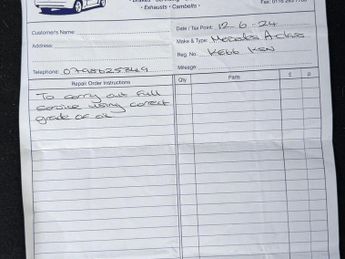 · Exhausts · Cambelts ·
Customer's Name:
Date / Tax Point: 12-6-24
Address:
Make & Type: Mercedes A Class
Reg. No.
Telephone:
Mileage
Repair Order Instructions
Qty Parts £ p
To carry out full
service using correct
grade of oil